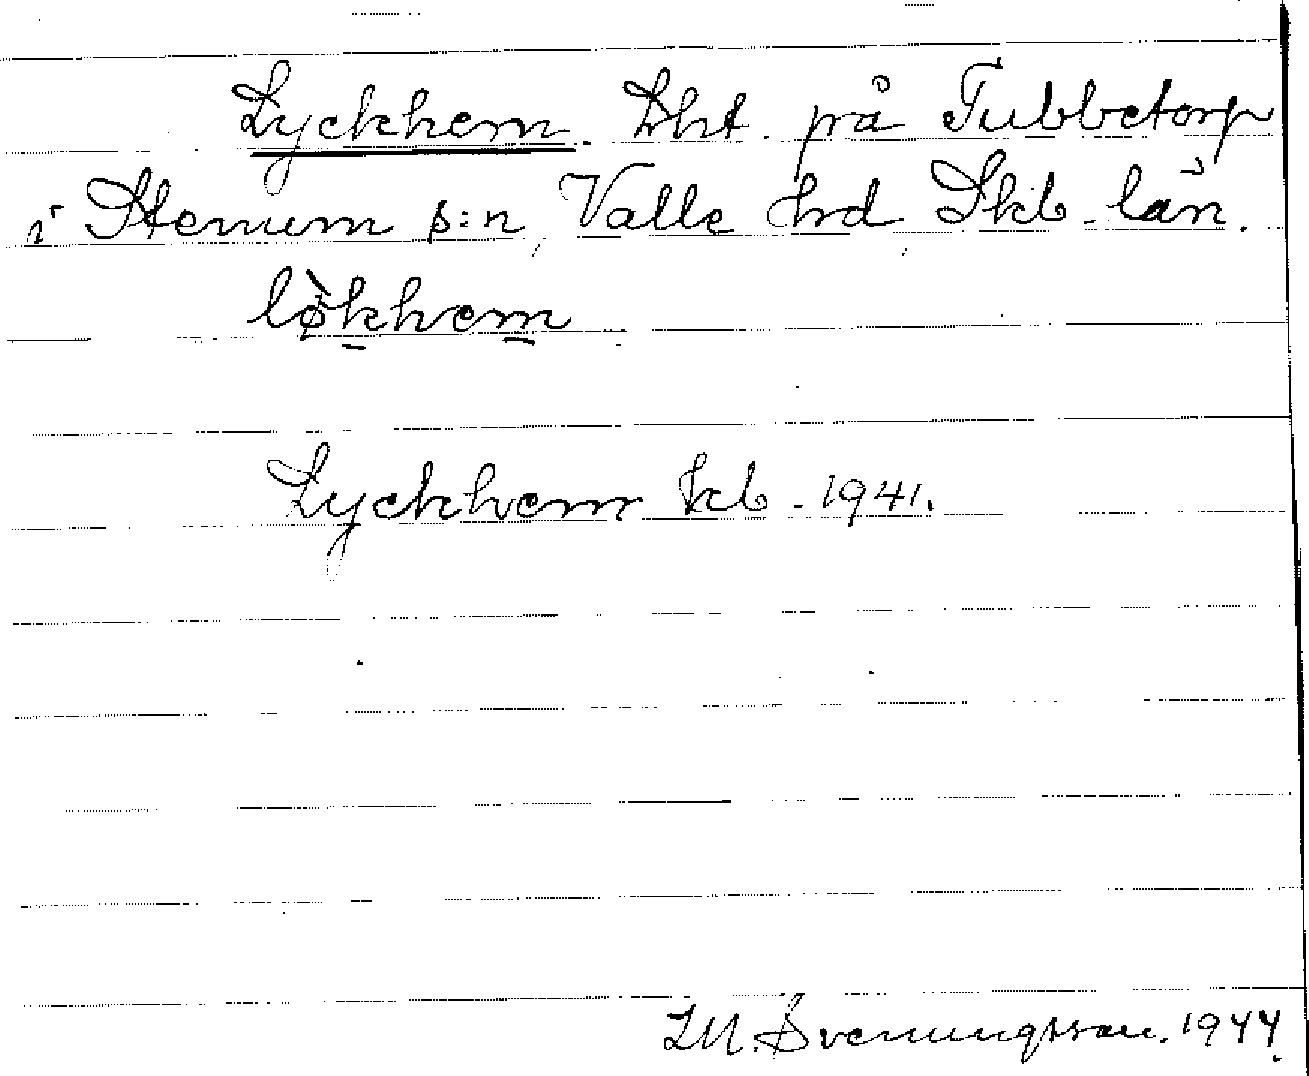 Lyckhem Lht. på Tubbetorp
i Stenum s:n, Valle hd, Skb. län.
lø̀khem
Lyckhem kb. 1941.
L.M. Svenungsson. 1944.